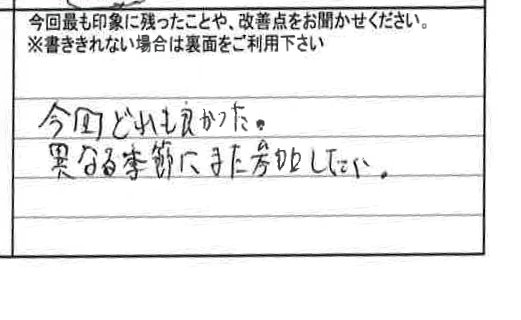 今回最も印象に残ったことや、改善点をお聞かせください。
※書ききれない場合は裏面をご利用下さい
今回どれも良かった。
異なる季節にまた参加したい。